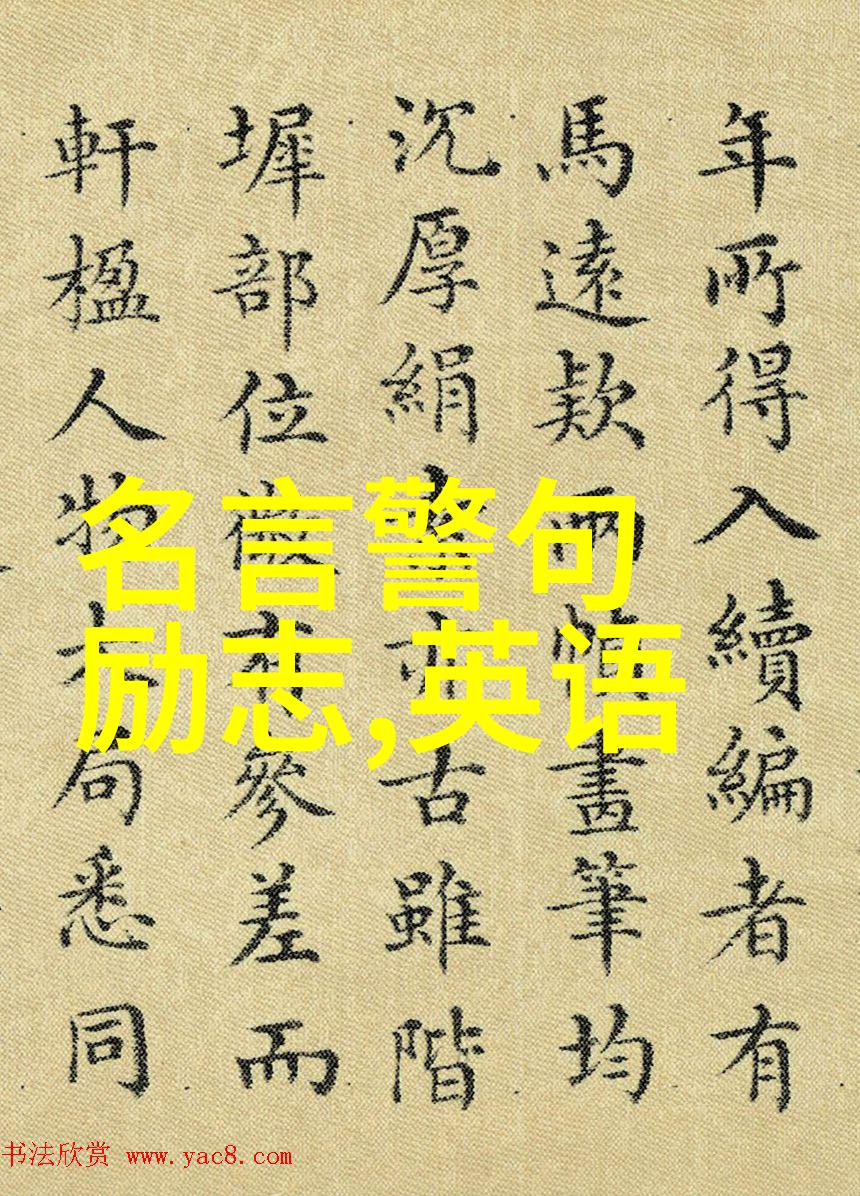 年所得入續編者有
馬遠款兩幀畫筆均
沉厚絹素亦古雖階
墀部位微有參差而
軒楹人物大局悉同
名言警句
励志,英语
书法欣赏 www.yac8.com